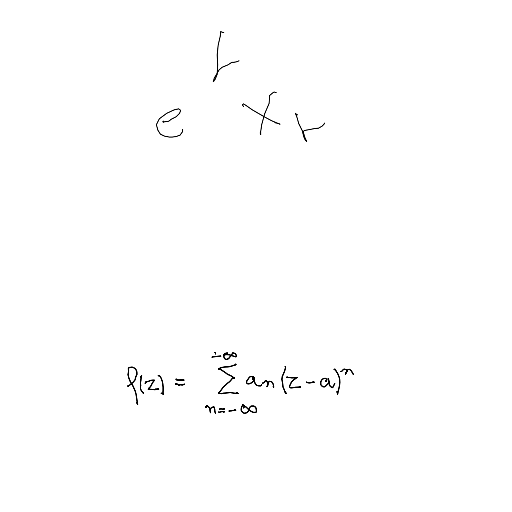 e^r x r
f(z) = \sum_{n=-\infty}^{-\infty} a_n (z-a)^n